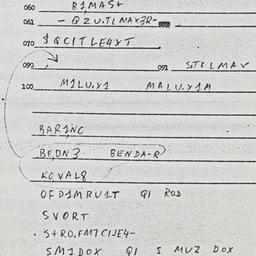 060 B1MAS+
061 - QZU.TLMAX3R-
070 $QCITLE4XT
090 091 STELMAX
100 M1LU.X1 MALU.X1M
BAR1NC
BE,DN3 BENDA-R
KO,VAL8
OFD1MRU1T Q1 ROD
SVORT
. S+RO.FM7C1JE4-
SM1DOX Q1 S MUZ DOX